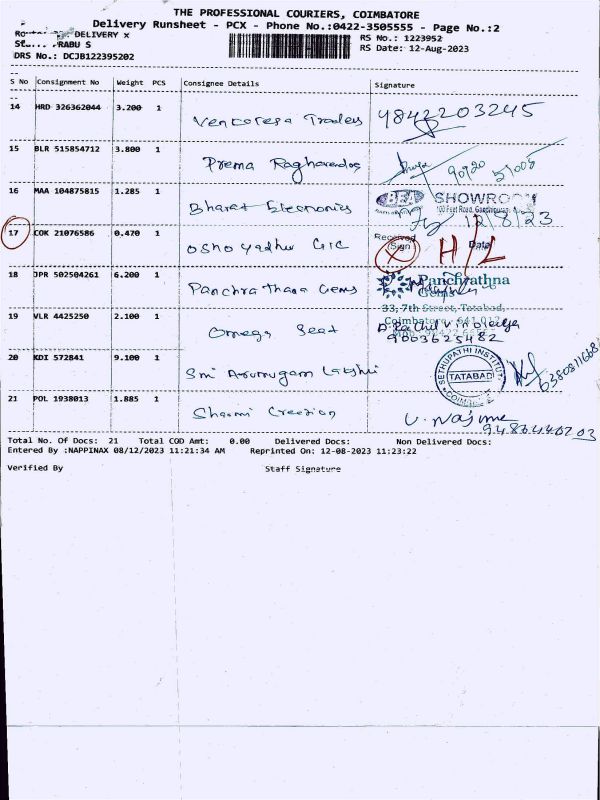 THE PROFESSIONAL COURIERS, COIMBATORE
Delivery Runsheet - PCX - Phone No.:0422-3505555 - Page No.:2
DELIVERY x
RS No.: 1223952
PRABU S
RS Date: 12-Aug-2023
DRS No.: DCJB122395202
S No Consignment No Weight PCS Consignee Details Signature
14 HRD 326362044 3.200 1 Traders 9842203245
15 BLR 515854712 3.800 1 Prema
16 MAA 104875815 1.285 1 Bharat Electronics
SHOWROOM
100 Feet Road, Gandhipuram
12/8/23
17 COK 21076586 0.470 1 Osho
Received
(Sign) Date
H/L
18 JPR 502504261 6.200 1 Gems
Panchrathna
Gems
33, 7th Street, Tatabad,
Coimbatore - 641 012
19 VLR 4425250 2.100 1 Omega Seat
9003625482
20 KDI 572841 9.100 1 Sri Arumugam
SETHUPATHI INSTITUTE
TATABAD
6380811668
21 POL 1938013 1.885 1 Sharmi Creation
9486440203
Total No. Of Docs: 21 Total COD Amt: 0.00 Delivered Docs: Non Delivered Docs:
Entered By :NAPPINAX 08/12/2023 11:21:34 AM Reprinted On: 12-08-2023 11:23:22
Verified By Staff Signature